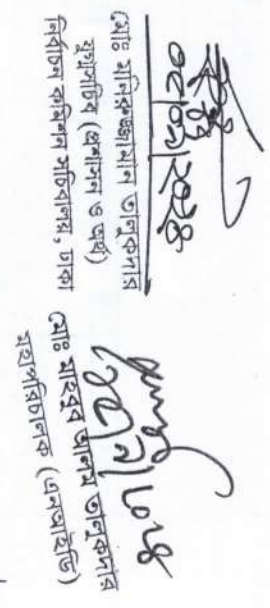 ০৮/০১/২০২৪
মোঃ মনিরুজ্জামান তালুকদার
যুগ্মসচিব (প্রশাসন ও অর্থ)
নির্বাচন কমিশন সচিবালয়, ঢাকা
মোঃ মাহবুব আলম তালুকদার
মহাপরিচালক (এনআইডি)